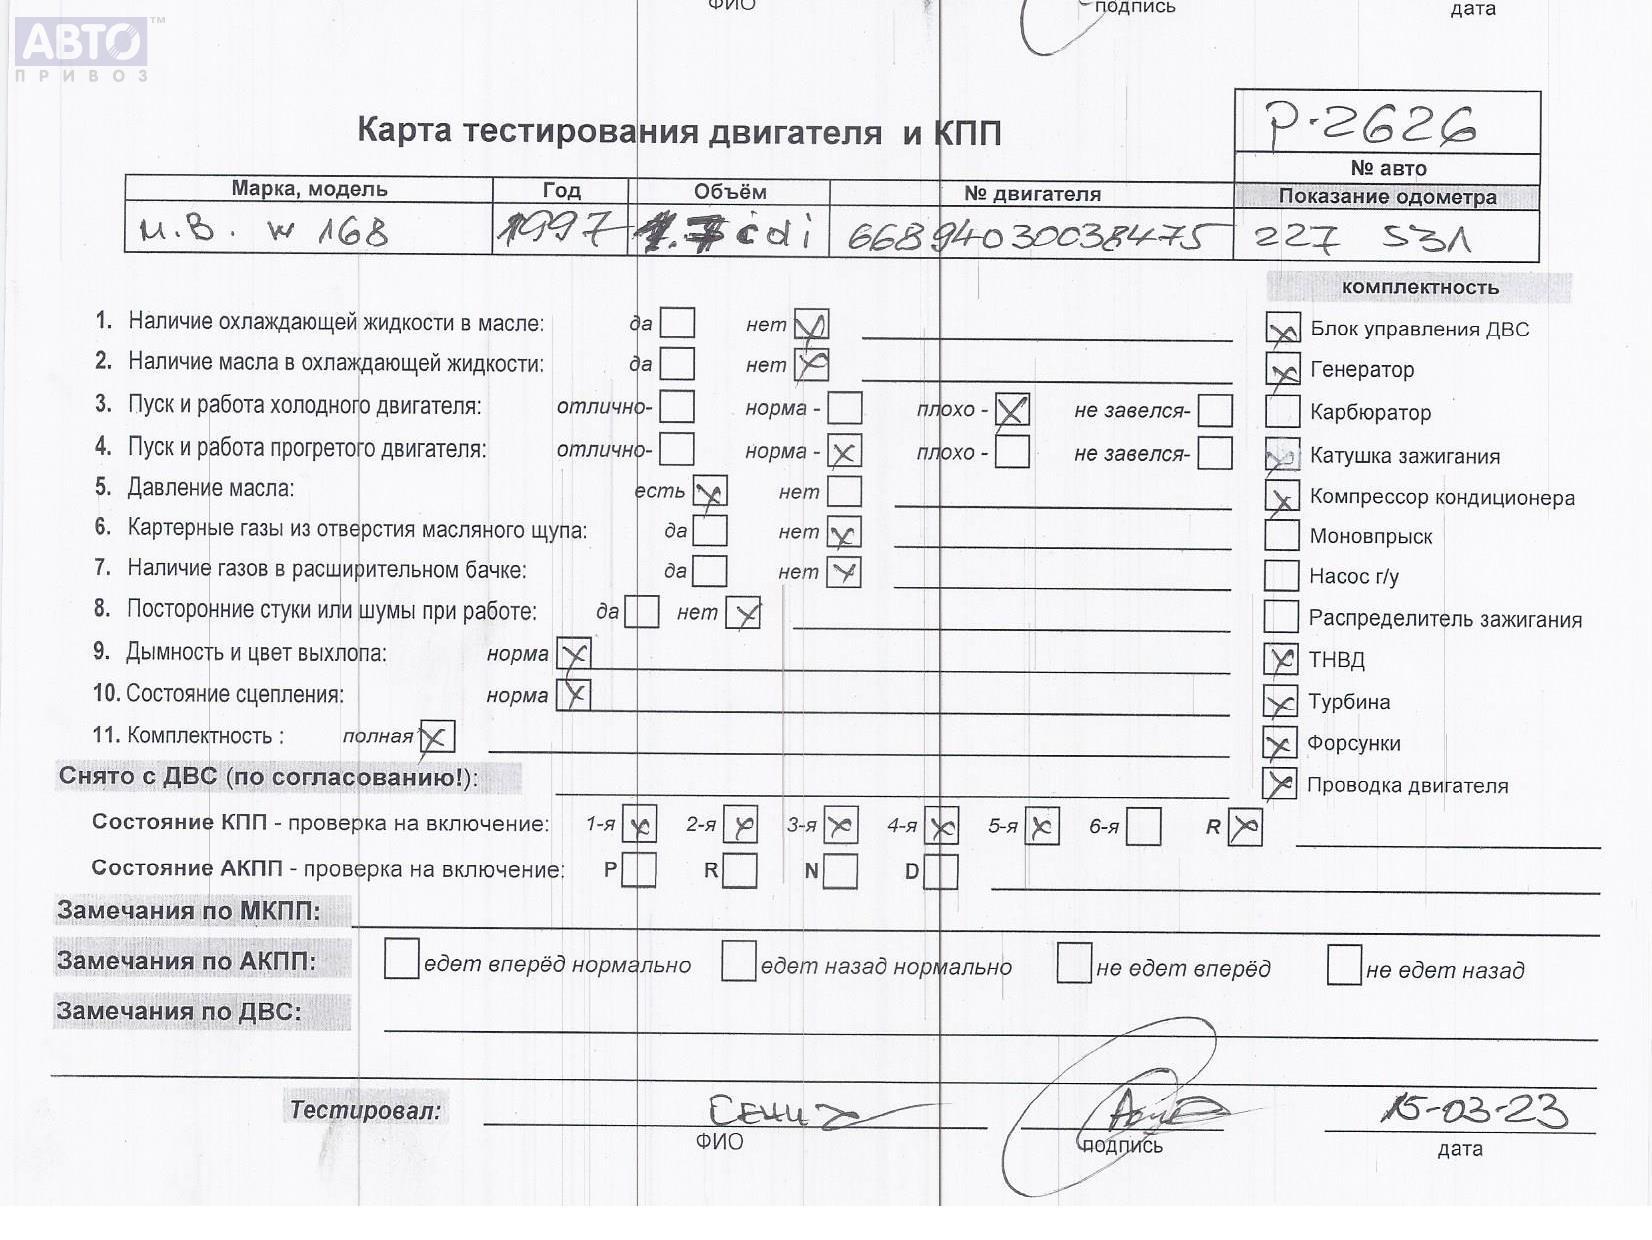 АВТО™
ПРИВОЗ
ФИО подпись дата
Карта тестирования двигателя и КПП
Р-2626
№ авто
Марка, модель Год Объём № двигателя Показание одометра
м.В. w 168 1997 1.7 cdi 66894030038475 227 531
комплектность
1. Наличие охлаждающей жидкости в масле: да нет Блок управления ДВС
2. Наличие масла в охлаждающей жидкости: да нет Генератор
3. Пуск и работа холодного двигателя: отлично- норма - плохо - не завелся- Карбюратор
4. Пуск и работа прогретого двигателя: отлично- норма - плохо - не завелся- Катушка зажигания
5. Давление масла: есть нет Компрессор кондиционера
6. Картерные газы из отверстия масляного щупа: да нет Моновпрыск
7. Наличие газов в расширительном бачке: да нет Насос г/у
8. Посторонние стуки или шумы при работе: да нет Распределитель зажигания
9. Дымность и цвет выхлопа: норма ТНВД
10. Состояние сцепления: норма Турбина
11. Комплектность : полная Форсунки
Снято с ДВС (по согласованию!): Проводка двигателя
Состояние КПП - проверка на включение: 1-я 2-я 3-я 4-я 5-я 6-я R
Состояние АКПП - проверка на включение: P R N D
Замечания по МКПП:
Замечания по АКПП: едет вперёд нормально едет назад нормально не едет вперёд не едет назад
Замечания по ДВС:
Тестировал: 15-03-23
ФИО подпись дата